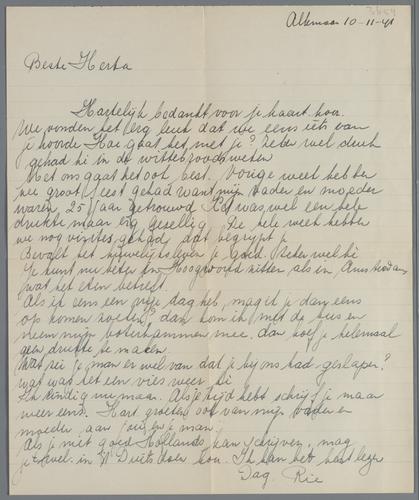 Alkmaar 10-11-41
Beste Herta
Hartelijk bedankt voor je kaart hoor.
We vonden het erg leuk dat we eens iets van
je hoorde Hoe gaat het met je? Zeker wel druk
gehad hé in de wittebroodsweken
Met ons gaat het ook best. Vorige week hebben
we groot feest gehad want mijn vader en moeder
waren 25 jaar getrouwd Het was wel een hele
drukte maar erg gezellig De hele week hebben
we nog visites gehad, dat begrijp je
Bevalt het huwelijksleven je goed. Zeker wel hé
Je kunt nu beter in Hoogwoud zitten als in Amsterdam
wat het eten betreft.
Als ik eens een vrije dag heb, mag ik je dan eens
op komen zoeken? dan kom ik met de bus en
neem mijn boterhammen mee, dan hoef je helemaal
geen drukte te maken.
Wat zei je man er wel van dat je bij ons had geslapen?
wat was het een vies weer hé
Ik eindig nu maar. Als je tijd hebt schrijf je maar
weer eens. Hart. groeten ook van mijn vader en
moeder aan jou en je man
Als je niet goed Hollands kan schrijven, mag
je 't wel in 't Duits doen hoor. Ik kan het best lezen
Dag Rie